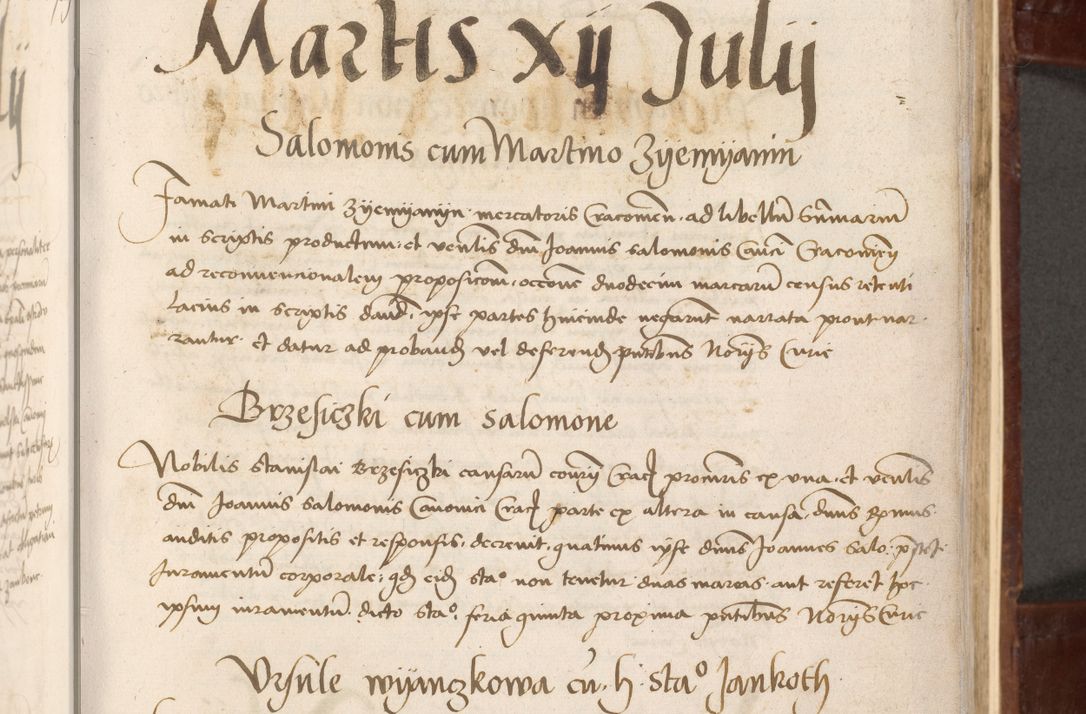 Martis xij Julij
Salomonis cum Martino Zyemyanin
Famati Martini Zyemyanyn mercatoris Cracovien. ad libellum summarium
in scriptis productum et venlis dni Joannis Salomonis Canci Cracovien
ad reconvencionalem proposicom, occone duodecim marcarum census retenti
Lacius in scriptis dand. ipse partes hincinde negarunt narrata prout nar
rantur. Et datur ad proband vel deferend pntibus Norijs Curie
Brzesiczki cum Salomone
Nobilis Stanislai Brzesiczki causarum Crac procuris ex una et venlis
dni Joannis Salomonis Canonici Crac parte ex altera in causa, dnus Rmus
auditis propositis et responsis, decrevit, quatinus ipse dnus Joannes Salo.
Juramentum corporale, qd eid Sta° non tenetur duas marcas aut referet hoc
ipsum iuramentum dicto Sta° feria quinta proxima pntibus Norijs Curie
Ursule Wyanczkowa cu. h. Sta° Jankoth